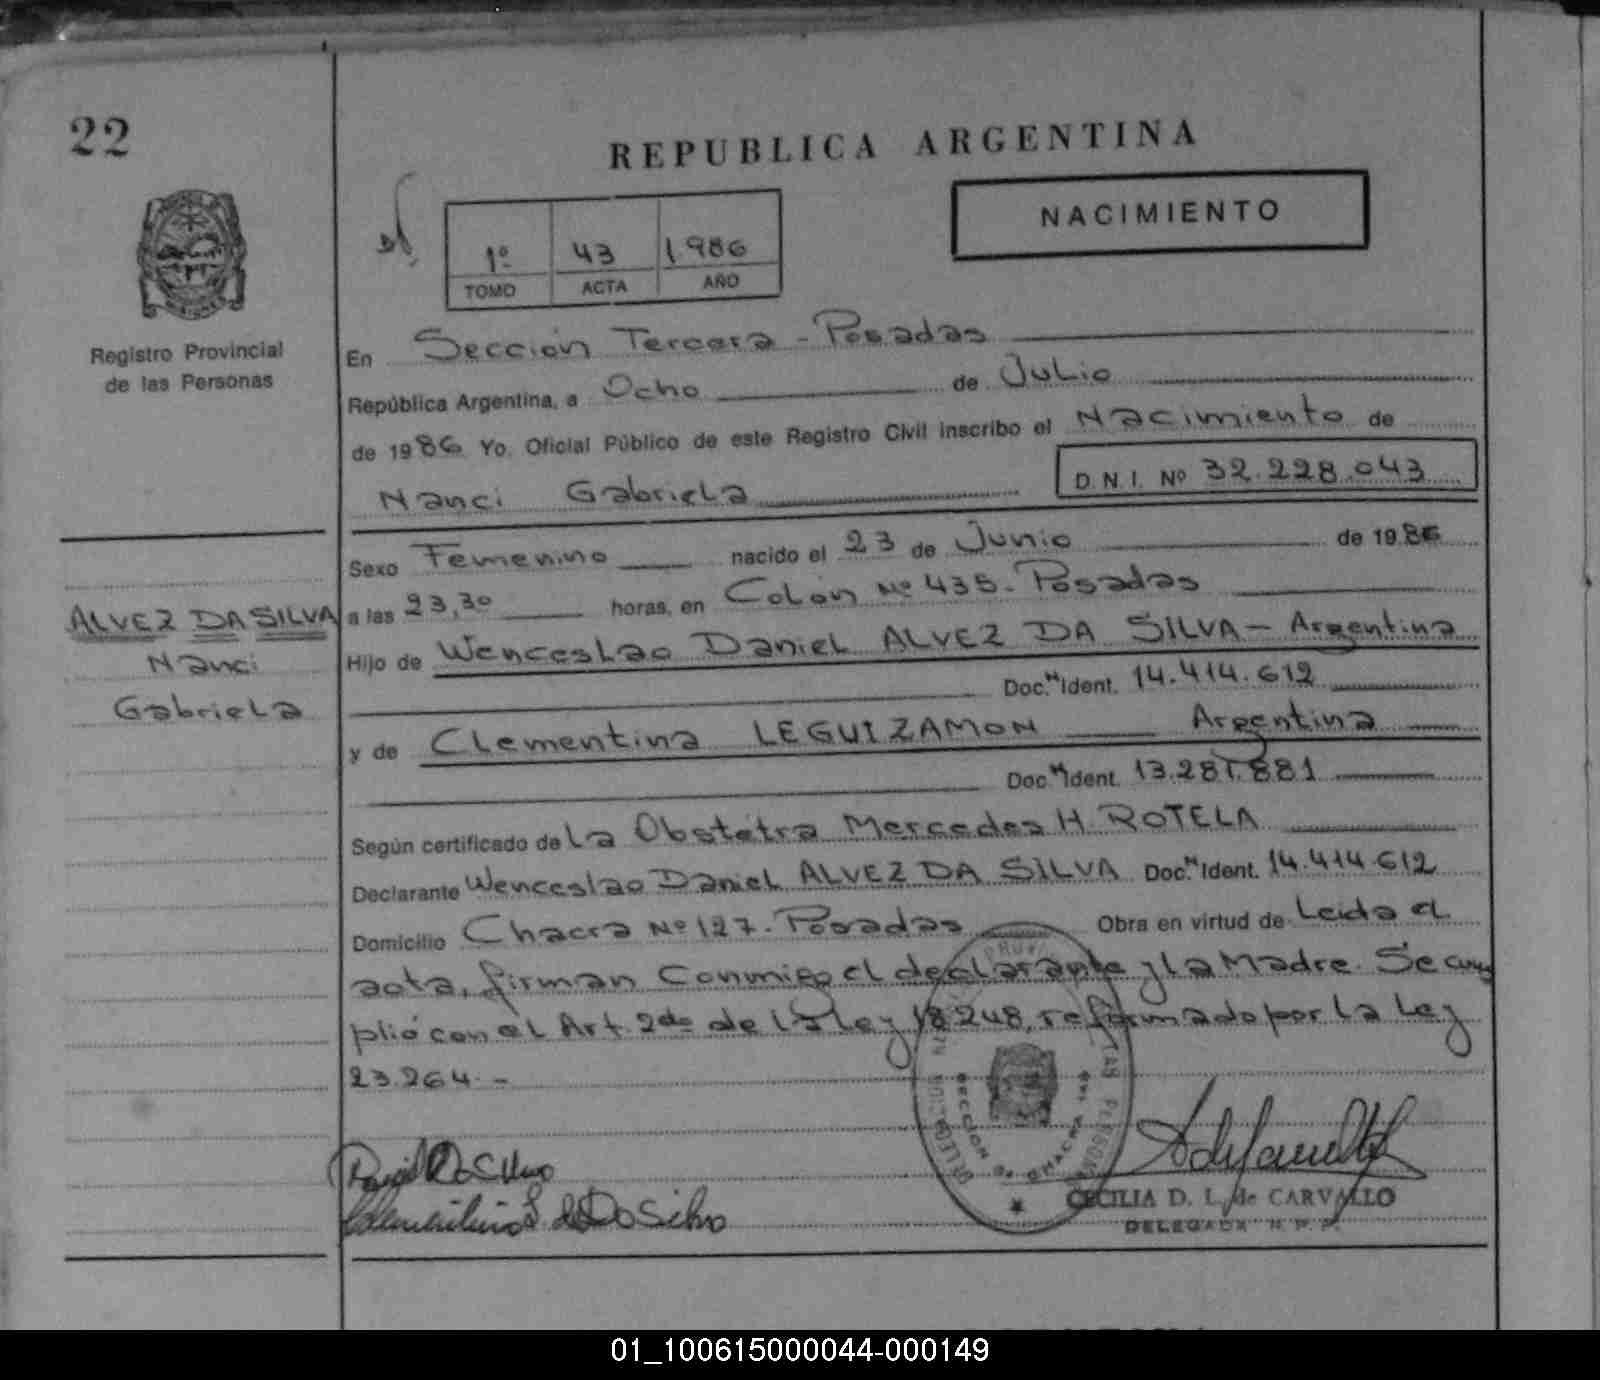 22
REPUBLICA ARGENTINA
NACIMIENTO
1º 43 1.986
TOMO ACTA AÑO
Registro Provincial
de las Personas
En Sección Tercera - Posadas
República Argentina, a Ocho de Julio
de 1986 Yo, Oficial Público de este Registro Civil inscribo el Nacimiento de
Nanci Gabriela D.N.I. Nº 32.228.043
Sexo Femenino nacido el 23 de Junio de 1986
a las 23,30 horas, en Colón Nº 435. Posadas
Hijo de Wenceslao Daniel ALVEZ DA SILVA - Argentina
Doc. Ident. 14.414.612
y de Clementina LEGUIZAMON Argentina
Doc. Ident. 13.281.881
Según certificado de La Obstétra Mercedes H. ROTELA
Declarante Wenceslao Daniel ALVEZ DA SILVA Doc. Ident. 14.414.612
Domicilio Chacra Nº 127. Posadas Obra en virtud de Leida el
acta, firman Conmigo el declarante y La Madre. Se cum
plió con el Art. 2do de la Ley 18248, reformado por La Ley
23.264. -
ALVEZ DA SILVA
Nanci
Gabriela
Da Silva
L. de Da Silva
CECILIA D. L. de CARVALLO
DELEGADA R. P. P.
01_100615000044-000149